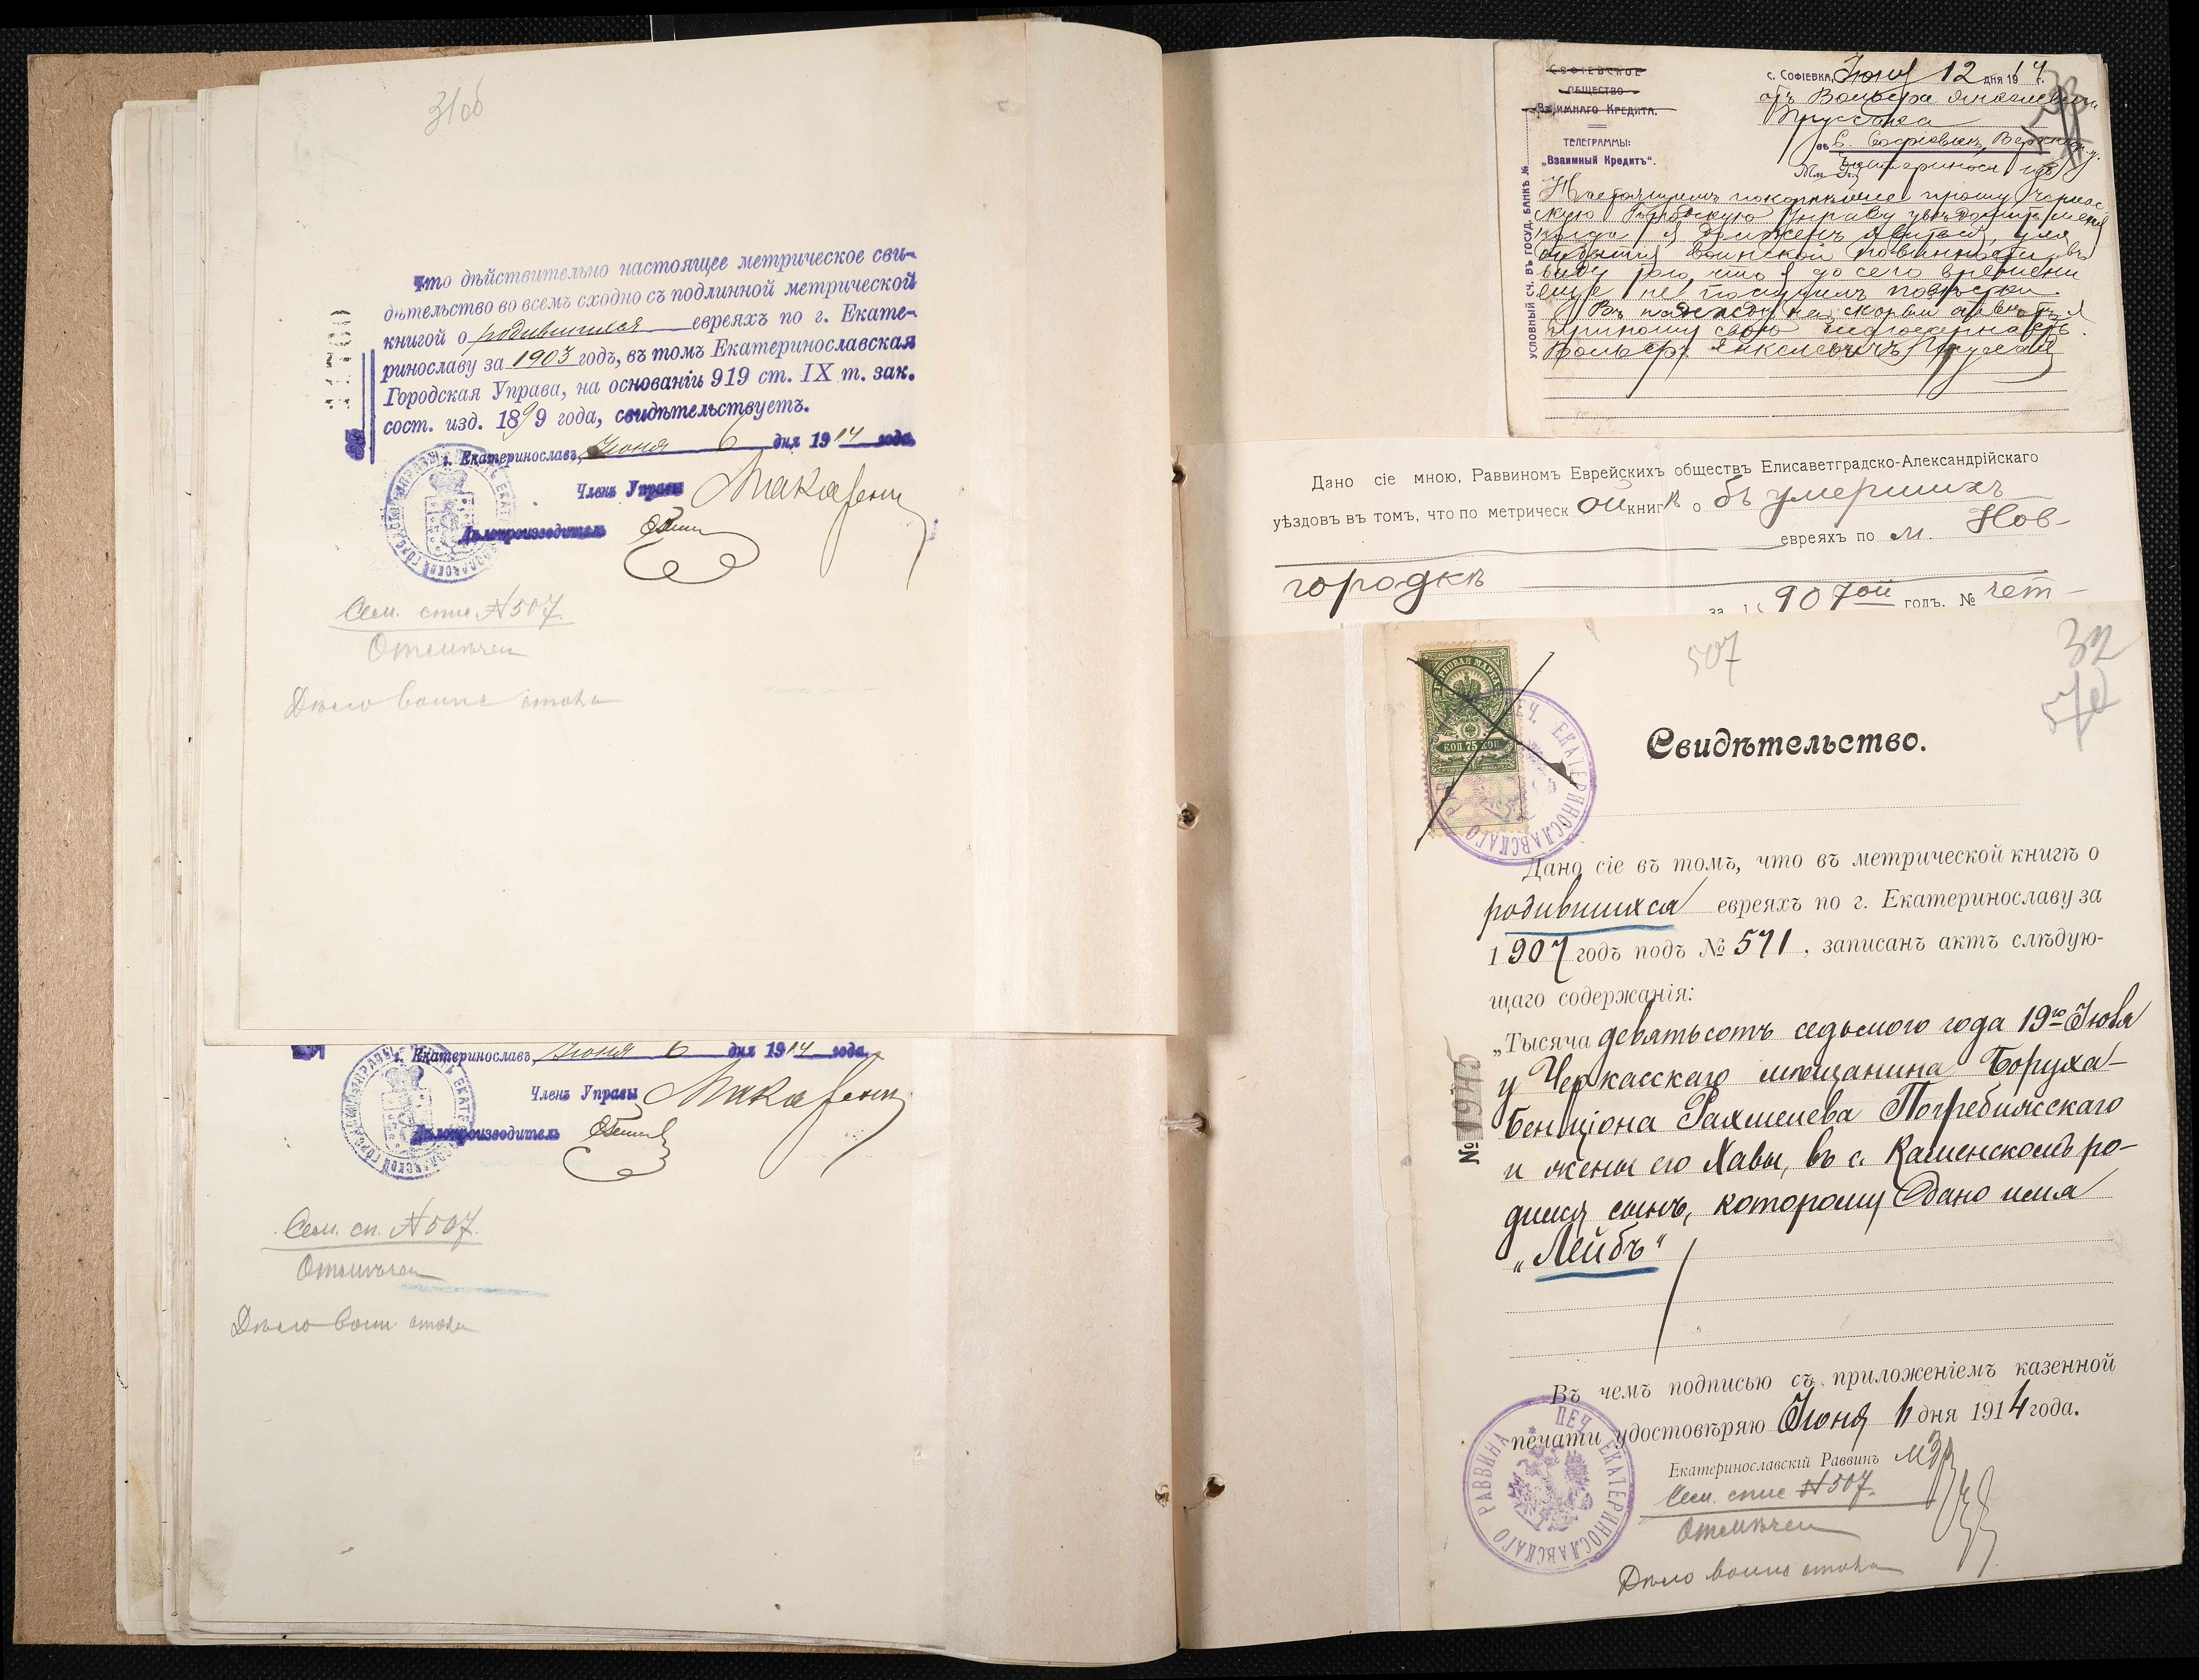 31об
Что дѣйствительно настоящее метрическое сви-
дѣтельство во всемъ сходно съ подлинной метрической
книгой о родившихся евреяхъ по г. Екате-
ринославу за 1903 годъ, въ томъ Екатеринославская
Городская Управа, на основаніи 919 ст. IX т. зак.
сост. изд. 1899 года, свидѣтельствуетъ.
г. Екатеринославъ, Іюня 6 дня 1914 года.
Членъ Управы
Дѣлопроизводитель
Сем. спис №507.
Отмѣчен
Дѣло воинс стола
г. Екатеринославъ, Іюня 6 дня 1914 года.
Членъ Управы
Дѣлопроизводитель
Сем. сп. №507.
Отмѣчен
Дѣло воин стола
СОФІЕВСКОЕ
ОБЩЕСТВО
Взаимнаго Кредита.
ТЕЛЕГРАММЫ:
„Взаимный Кредитъ“.
УСЛОВНЫЙ СЧ. ВЪ ГОСУД. БАНКѢ №
с. Софіевка, Іюня 12 дня 1914 г.
отъ Вольфа Янкелевича
Прусса
въ с. Софіевкѣ,
Настоящимъ покорнѣйше прошу Черкас
скую Городскую Управу увѣдомить меня
когда я долженъ явиться для
отбытія воинской повинности въ
виду того, что я до сего времени
еще не получилъ повѣстки.
Въ надеждѣ на скорый отвѣтъ я
приношу свою благодарность.
Вольфъ Янкелевичъ
Дано сіе мною, Раввиномъ Еврейскихъ обществъ Елисаветградско-Александрійскаго
уѣздовъ въ томъ, что по метрическ ой книгѣ о бъ умершихъ
евреяхъ по м. Нов-
городкѣ
за 1907ой годъ. № чет-
507
32
Свидѣтельство.
ГЕРБОВАЯ МАРКА
КОП 75 КОП
ПЕЧ. ЕКАТЕРИНОСЛАВСКАГО
Дано сіе въ томъ, что въ метрической книгѣ о
родившихся евреяхъ по г. Екатеринославу за
1907 годъ подъ № 571, записанъ актъ слѣдую-
щаго содержанія:
„Тысяча девятьсотъ седьмого года 19го Іюля
у Черкасскаго мѣщанина Боруха-
Бенціона Рахмилева Погребижскаго
и жены его Хавы, въ с. Каменскомъ ро-
дился сынъ, которому дано имя
„Лейбъ“
№ 19745
Въ чемъ подписью съ приложеніемъ казенной
печати удостовѣряю Іюня 6 дня 1914 года.
Екатеринославскій Раввинъ
ПЕЧ. ЕКАТЕРИНОСЛАВСКАГО РАВВИНА
Сем. спис №507.
Отмѣчен
Дѣло воинс стола